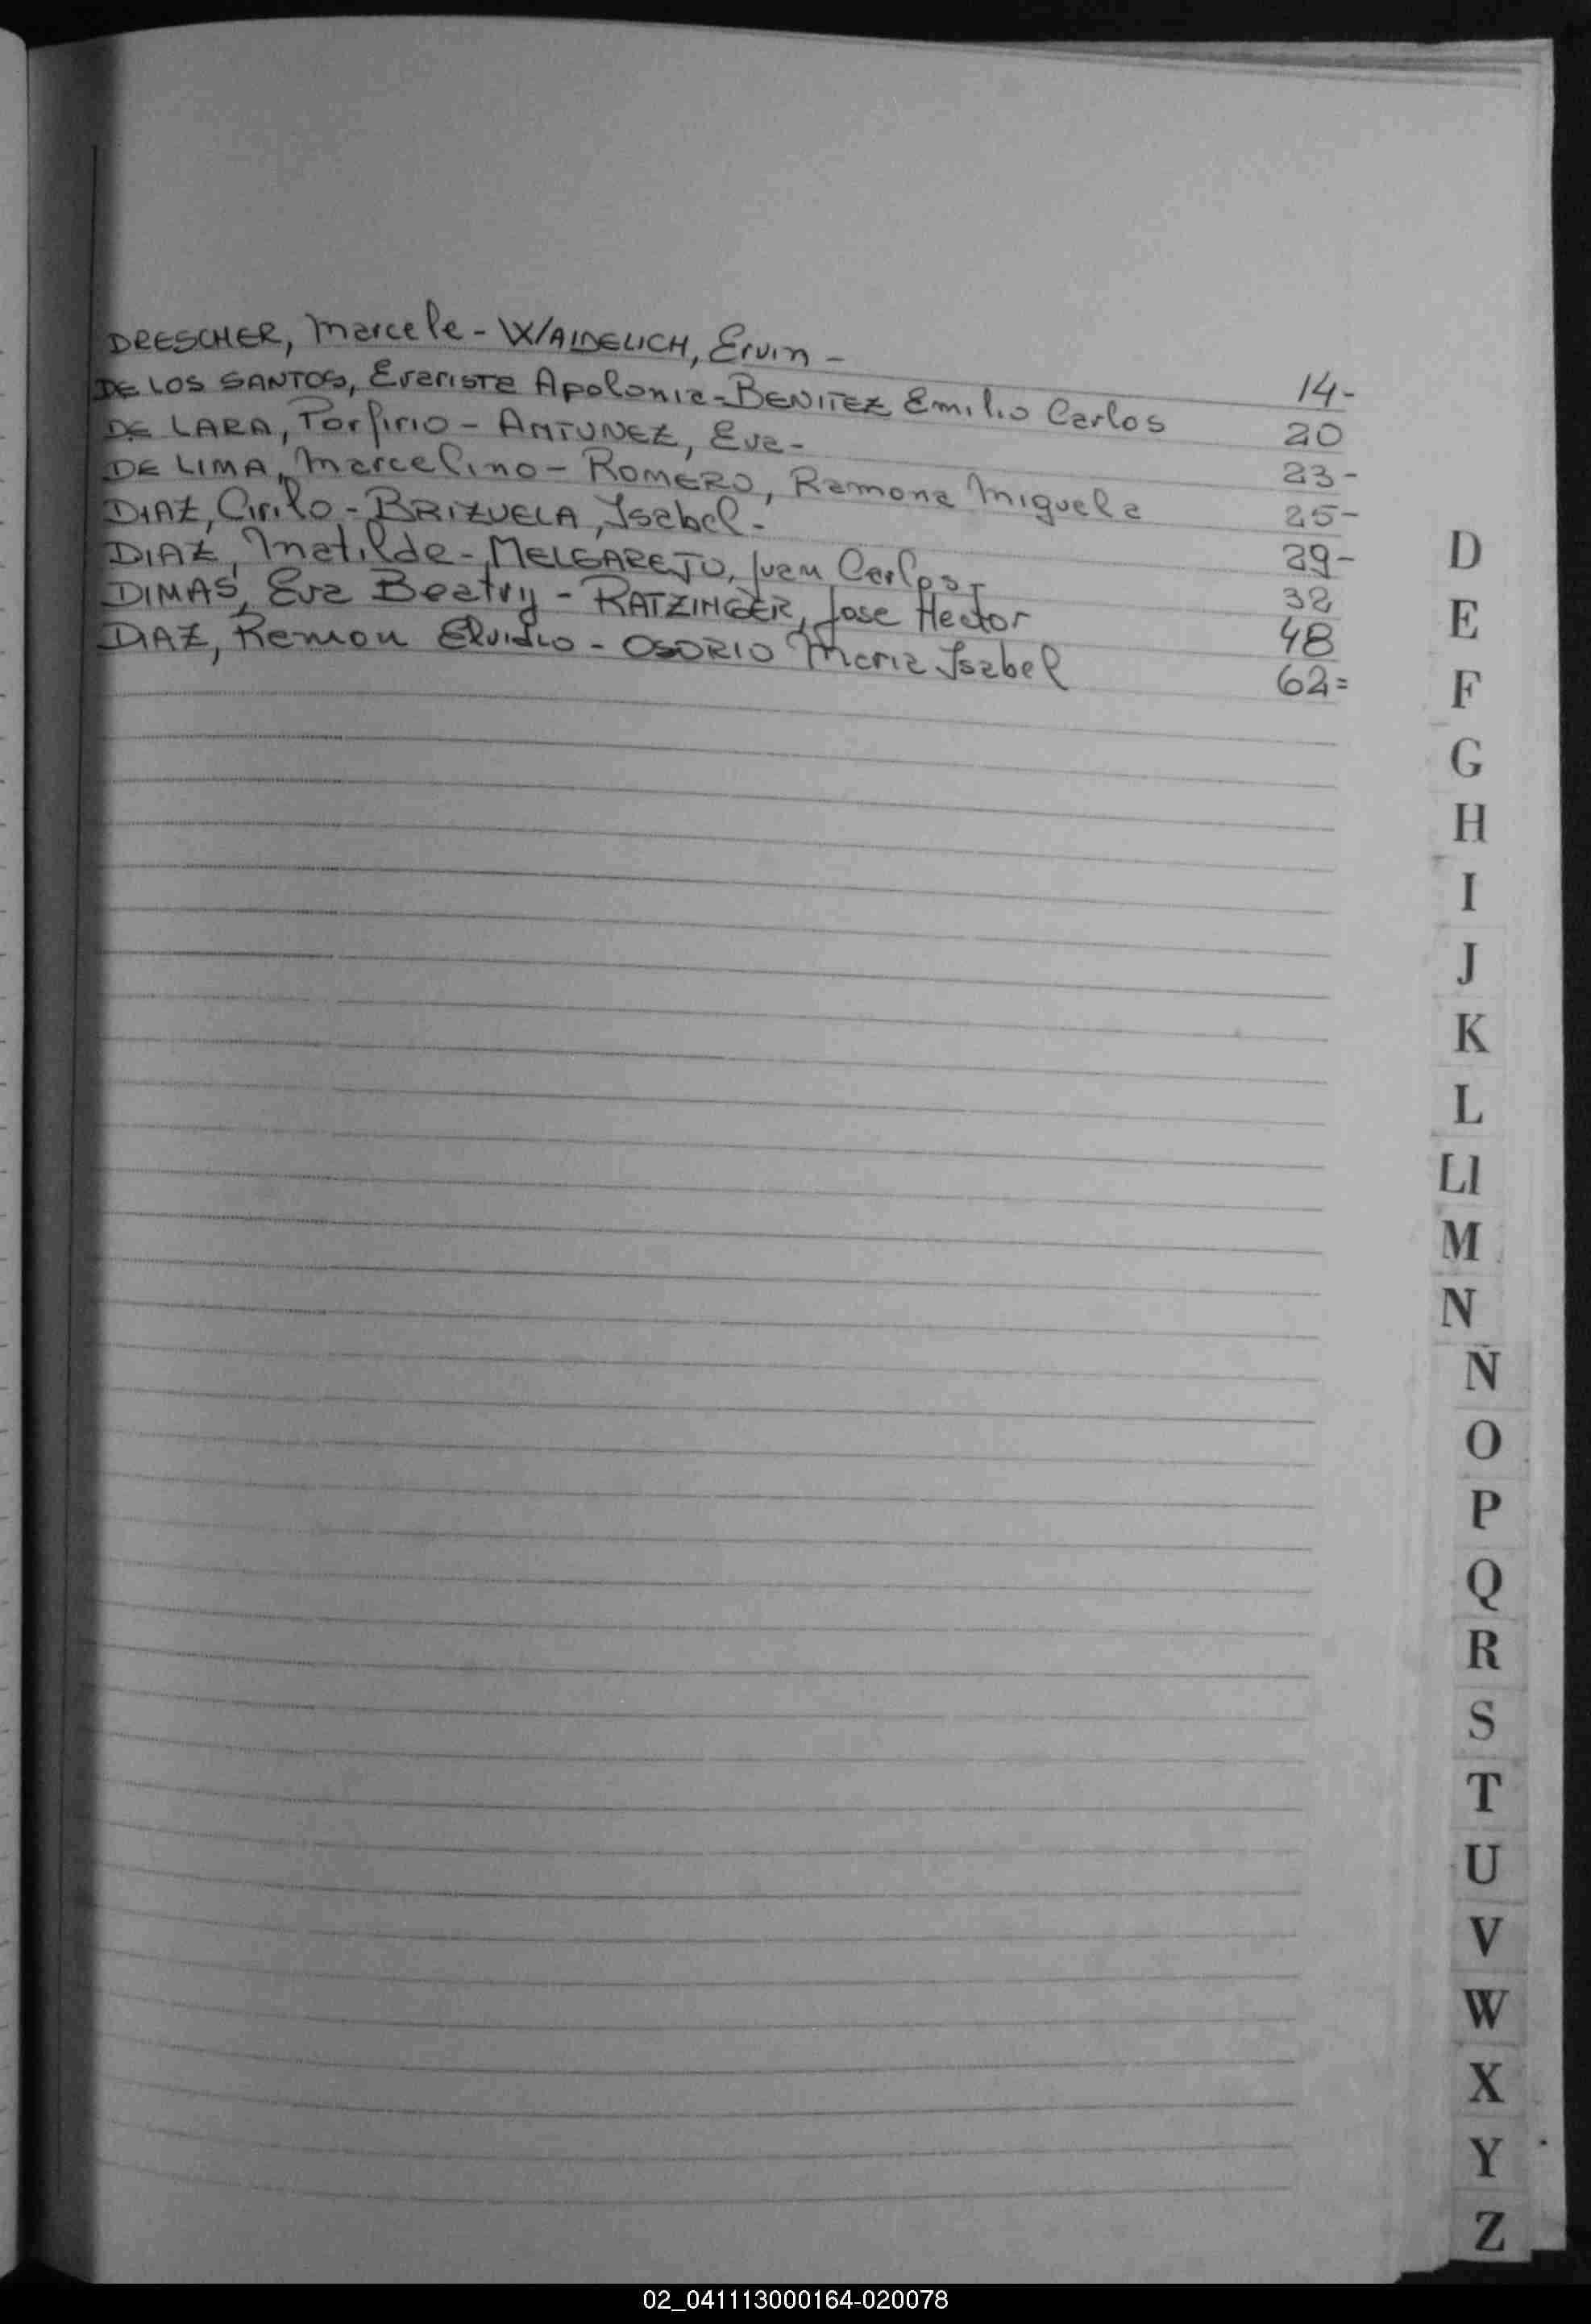 DRESCHER, Marcela - WAIDELICH, Ervin - 14-
DE LOS SANTOS, Evarista Apolonia - BENITEZ Emilio Carlos 20
DE LARA, Porfirio - ANTUNEZ, Eva - 23-
DE LIMA, Marcelino - ROMERO, Ramona Miguela 25-
DIAZ, Cirilo - BRIZUELA, Isabel - 29-
DIAZ, Matilde - MELGAREJO, Juan Carlos - 32
DIMAS, Eva Beatriz - RATZINGER, Jose Hector 48
DIAZ, Ramon Elvidio - OSORIO Maria Isabel 62=
D
E
F
G
H
I
J
K
L
Ll
M
N
Ñ
O
P
Q
R
S
T
U
V
W
X
Y
Z
02_041113000164-020078